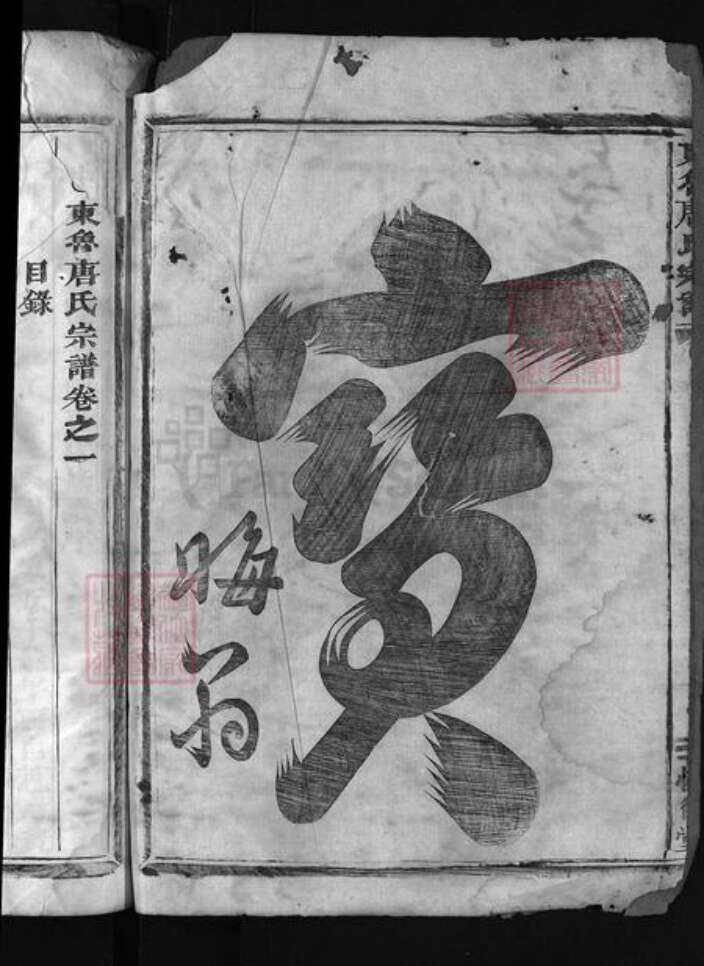 東魯唐氏宗譜
寶
晦翁
東魯唐氏宗譜卷之一
目錄